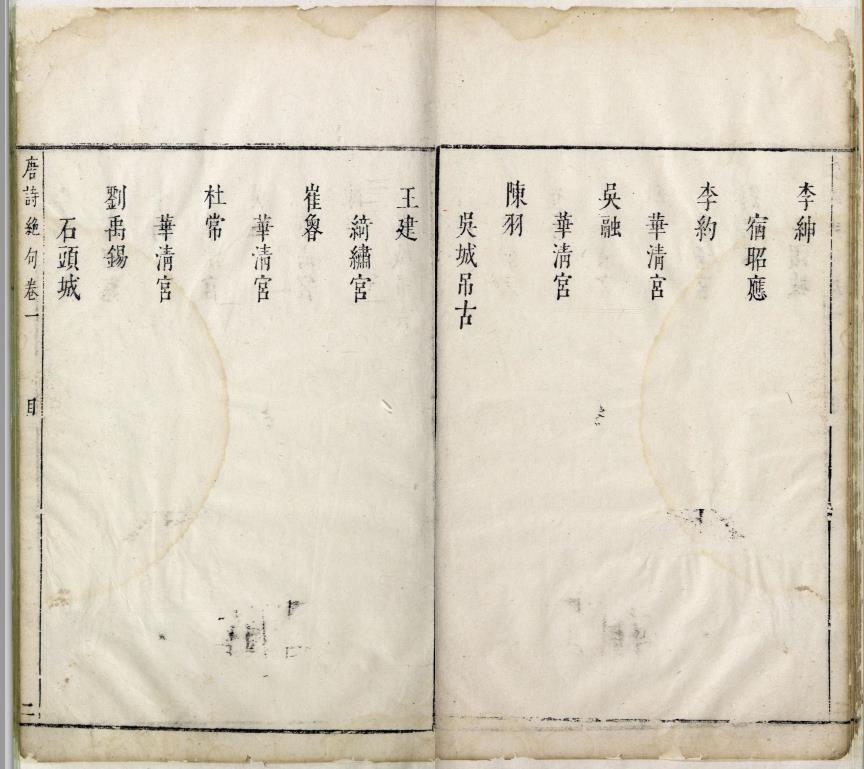 李紳
宿昭應
李約
華清宮
吳融
華清宮
陳羽
吳城吊古
王建
綺繡宮
崔魯
華清宮
杜常
華清宮
劉禹錫
石頭城
唐詩絕句卷一 目 二